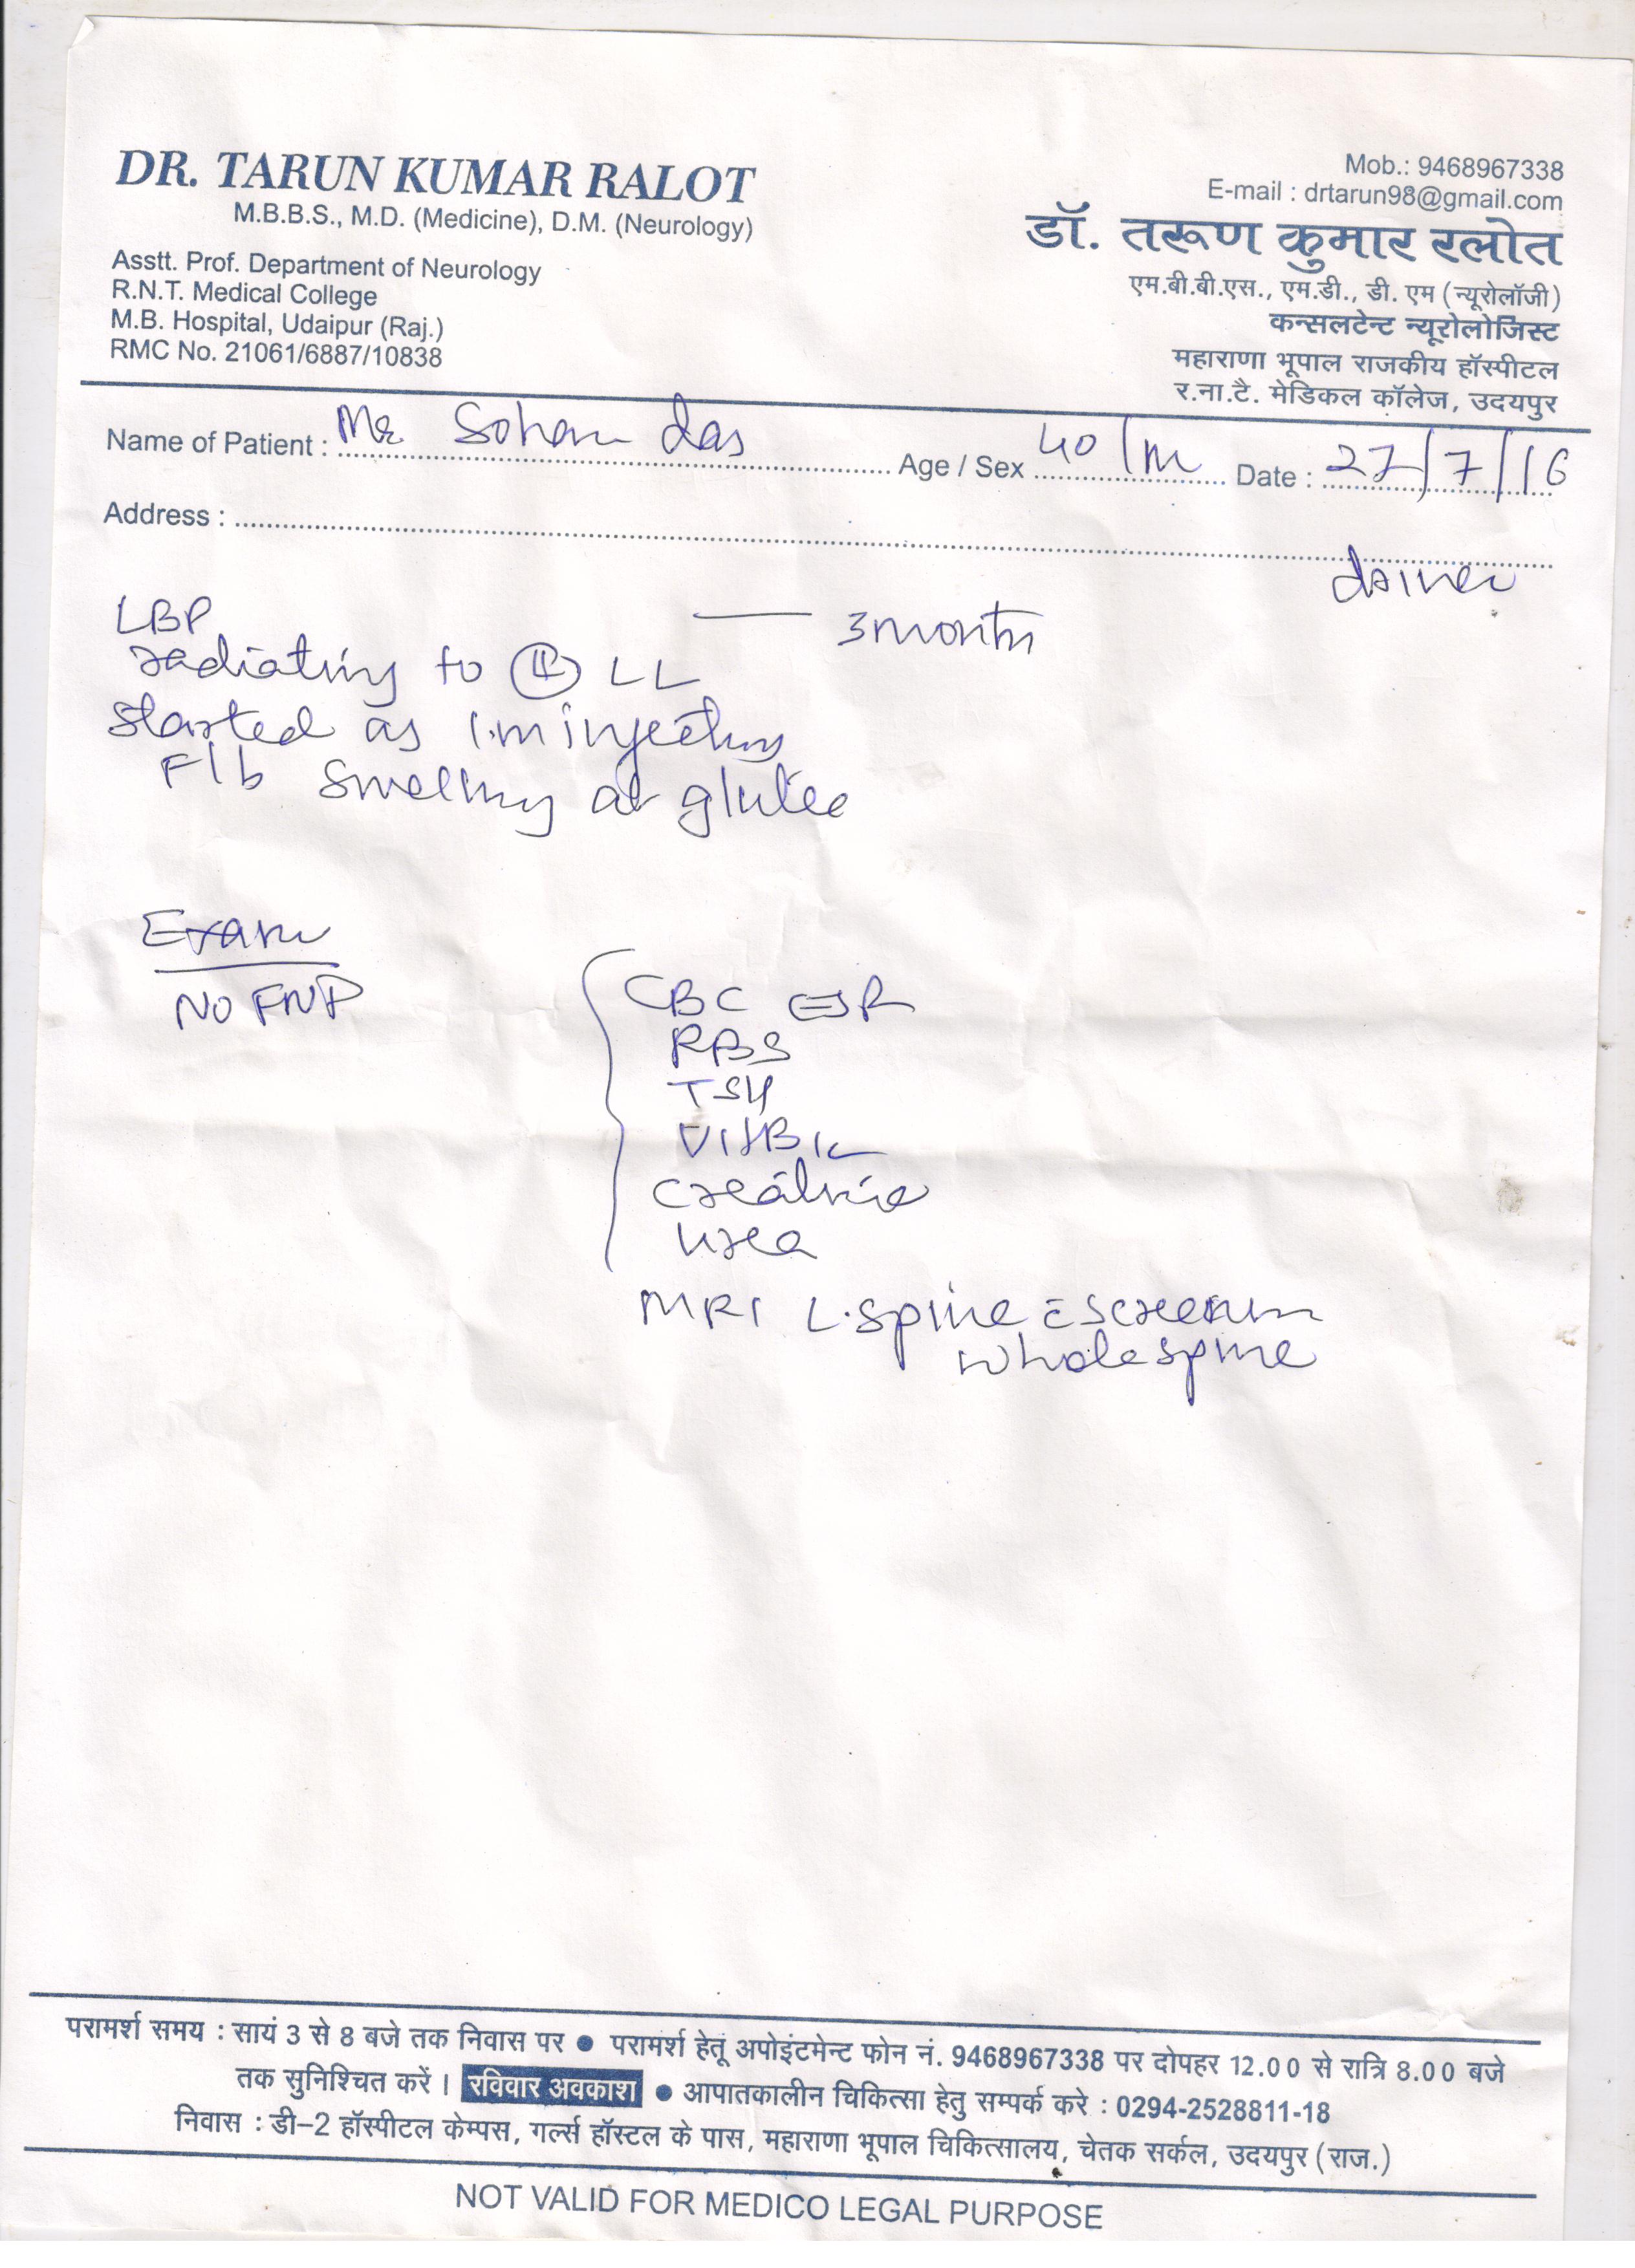 DR. TARUN KUMAR RALOT
M.B.B.S., M.D. (Medicine), D.M. (Neurology)
Asstt. Prof. Department of Neurology
R.N.T. Medical College
M.B. Hospital, Udaipur (Raj.)
RMC No. 21061/6887/10838
Mob.: 9468967338
E-mail : drtarun98@gmail.com
डॉ. तरूण कुमार रलोत
एम.बी.बी.एस., एम.डी., डी. एम (न्यूरोलॉजी)
कन्सलटेन्ट न्यूरोलोजिस्ट
महाराणा भूपाल राजकीय हॉस्पीटल
र.ना.टै. मेडिकल कॉलेज, उदयपुर
Name of Patient : Mr Sohan das Age / Sex 40/m Date : 27/7/16
Address :
driver
LBP — 3 months
radiating to LL
started as I.m injection
F/b swelling at
Exam
NO FND
CBC ESR
RBS
TSH
Vit B12
creatinine
urea
MRI L.spine c̄ screening
whole spine
परामर्श समय : सायं 3 से 8 बजे तक निवास पर ● परामर्श हेतू अपोइंटमेन्ट फोन नं. 9468967338 पर दोपहर 12.00 से रात्रि 8.00 बजे
तक सुनिश्चित करें। रविवार अवकाश ● आपातकालीन चिकित्सा हेतु सम्पर्क करे : 0294-2528811-18
निवास : डी-2 हॉस्पीटल केम्पस, गर्ल्स हॉस्टल के पास, महाराणा भूपाल चिकित्सालय, चेतक सर्कल, उदयपुर (राज.)
NOT VALID FOR MEDICO LEGAL PURPOSE